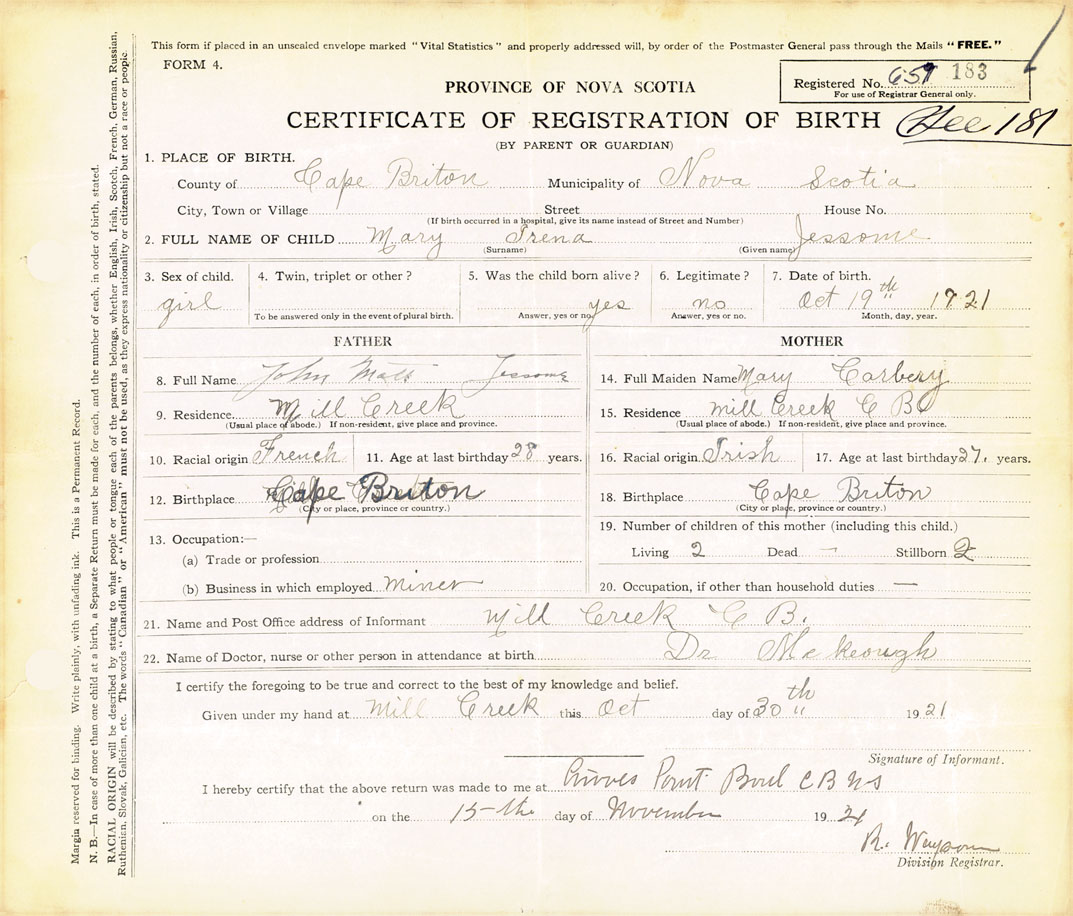 This form if placed in an unsealed envelope marked "Vital Statistics" and properly addressed will, by order of the Postmaster General pass through the Mails "FREE."
FORM 4.
Registered No. 659 183
For use of Registrar General only.
PROVINCE OF NOVA SCOTIA
CERTIFICATE OF REGISTRATION OF BIRTH See 181
(BY PARENT OR GUARDIAN)
1. PLACE OF BIRTH.
County of Cape Briton Municipality of Nova Scotia
City, Town or Village Street House No.
(If birth occurred in a hospital, give its name instead of Street and Number)
2. FULL NAME OF CHILD Mary Irena Jessome
(Surname) (Given name)
3. Sex of child. 4. Twin, triplet or other? 5. Was the child born alive? 6. Legitimate? 7. Date of birth.
girl yes no Oct 19th 1921
To be answered only in the event of plural birth. Answer, yes or no. Answer, yes or no. Month, day, year.
FATHER
8. Full Name John Jessome
9. Residence Mill Creek
(Usual place of abode.) If non-resident, give place and province.
10. Racial origin French 11. Age at last birthday 28 years.
12. Birthplace Cape Briton
(City or place, province or country.)
13. Occupation:—
(a) Trade or profession
(b) Business in which employed Miner
MOTHER
14. Full Maiden Name Mary Corbery
15. Residence Mill Creek C B
(Usual place of abode.) If non-resident, give place and province.
16. Racial origin Irish 17. Age at last birthday 27. years.
18. Birthplace Cape Briton
(City or place, province or country.)
19. Number of children of this mother (including this child.)
Living 2 Dead — Stillborn 2
20. Occupation, if other than household duties —
21. Name and Post Office address of Informant Mill Creek C B.
22. Name of Doctor, nurse or other person in attendance at birth Dr Mckeough
I certify the foregoing to be true and correct to the best of my knowledge and belief.
Given under my hand at Mill Creek this Oct day of 30th 1921
Signature of Informant.
I hereby certify that the above return was made to me at Point C B N S
on the 15-the day of November 1921
R.
Division Registrar.
Margin reserved for binding. Write plainly, with unfading ink. This is a Permanent Record.
N. B.—In case of more than one child at a birth, a Separate Return must be made for each, and the number of each, in order of birth, stated.
RACIAL ORIGIN will be described by stating to what people or tongue each of the parents belongs, whether English, Irish, Scotch, French, German, Russian,
Ruthenian, Slovak, Galician, etc. The words "Canadian" or "American" must not be used, as they express nationality or citizenship but not a race or people.